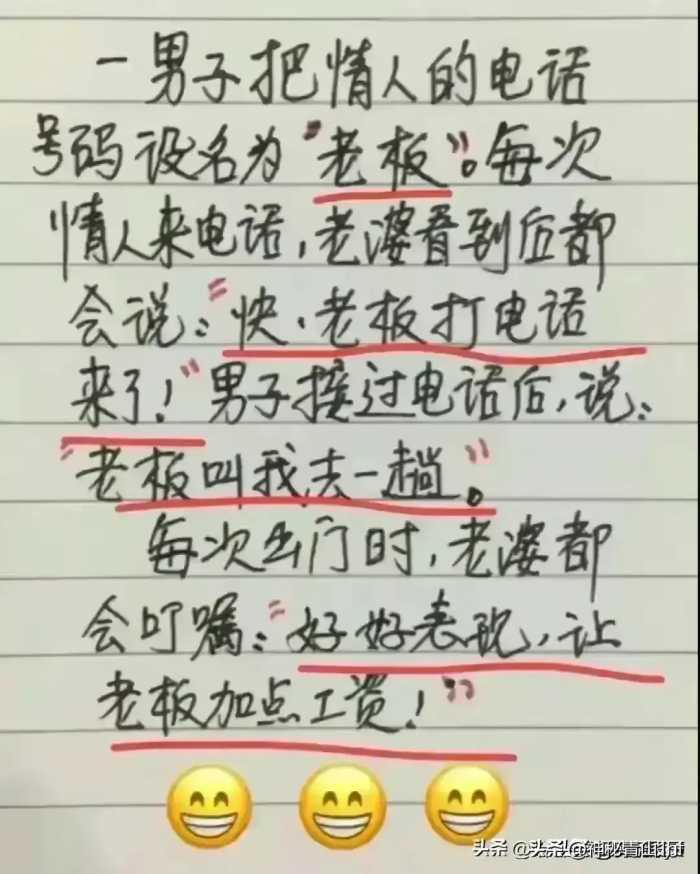 一男子把情人的电话
号码设名为"老板"。每次
情人来电话,老婆看到后都
会说:"快、老板打电话
来了!"男子接过电话后,说:
"老板叫我去一趟"。
每次出门时,老婆都
会叮嘱:"好好表现,让
老板加点工资!"
头条 @